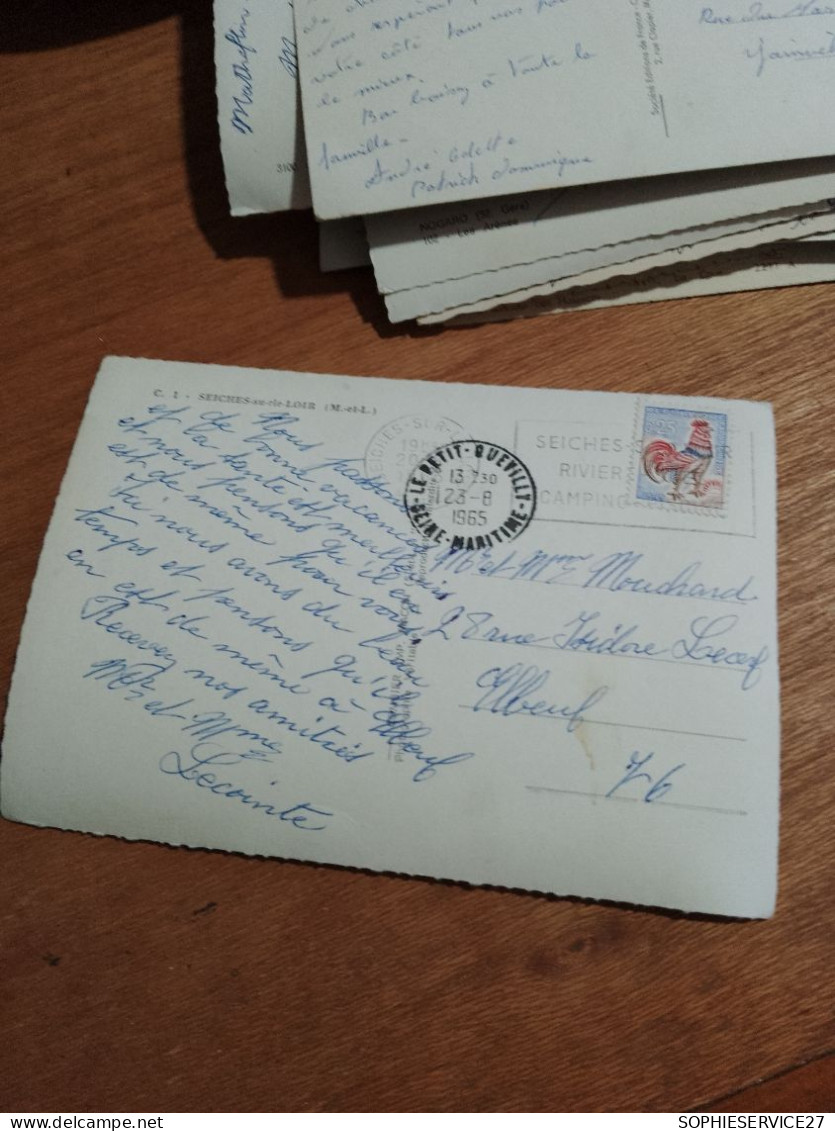 Matheflon
vous espérant
votre côté tous vos
le mieux.
Bon baiser à toute la
famille.
André Odette
Patrick Dominique
3100
Société Editions de France
Rue du
NOGARO (32 Gers)
102 - Les Arènes
C. 1 - SEICHES-su-rle-LOIR (M.-et-L.)
Nous passons
de bonne vacances
et la santé est meilleure
et nous pensons qu'il en
est de même pour vous
Ici nous avons du beau
temps et pensons qu'il
en est de même à Elbeuf
Recevez nos amitiés
Mr et Mme
Lecointe
SEICHES-SUR-
LE PETIT-QUEVILLY
13 H 30
23-8
1965
SEINE-MARITIME
SEICHES
RIVIER
CAMPING
0,25
Mr et Mme Mouchard
28 rue Isidore Lecerf
Elbeuf
76
SOPHIESERVICE27